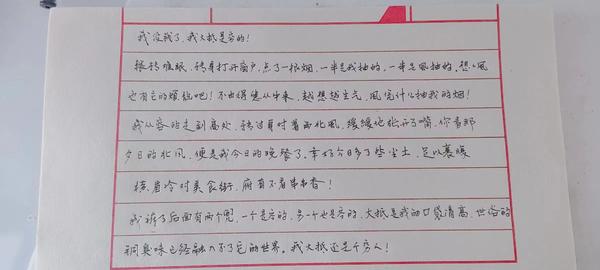 我没钱了，我大抵是穷的！
辗转难眠，转身打开窗户，点了一根烟，一半是我抽的，一半是风抽的，想必风
也有它的烦恼吧！不由得悲从中来，越想越生气，风凭什么抽我的烟！
我从容的走到高处，转过身对着西北风，缓缓地张开了嘴，你看那
夕日的北风，便是我今日的晚餐了，幸好今日多了些尘土，足以裹腹
横眉冷对美食街，俯首不看串串香！
我裤子后面有两个兜，一个是穷的，另一个也是穷的，大抵是我的口袋清高，世俗的
铜臭味已经融入不了它的世界。我大抵还是个穷人！